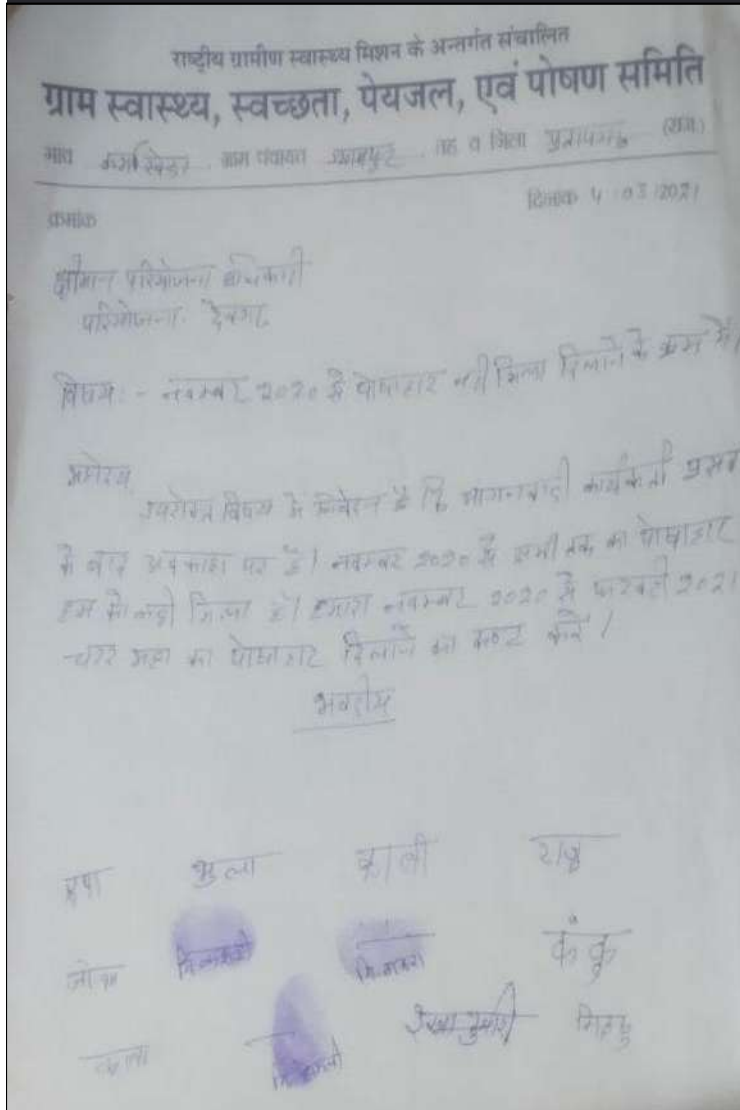 राष्ट्रीय ग्रामीण स्वास्थ्य मिशन के अन्तर्गत संचालित
ग्राम स्वास्थ्य, स्वच्छता, पेयजल, एवं पोषण समिति
ग्राम पंचायत तह व जिला प्रतापगढ़ (राज.)
क्रमांक दिनांक 4/03/2021
श्रीमान परियोजना अधिकारी
परियोजना. देवगढ़
विषय :- नवम्बर 2020 से पोषाहार नही मिला दिलाने के क्रम में।
उपरोक्त विषय में निवेदन है कि आंगनवाडी कार्यकर्ता प्रसव
के बाद अवकाश पर है। नवम्बर 2020 से अभी तक का पोषाहार
हम को नही मिला है। हमारा नवम्बर 2020 से फरवरी 2021
चार माहा का पोषाहार दिलाने का कष्ट करें।
भवदीय
भुला काली राजु
कंकु